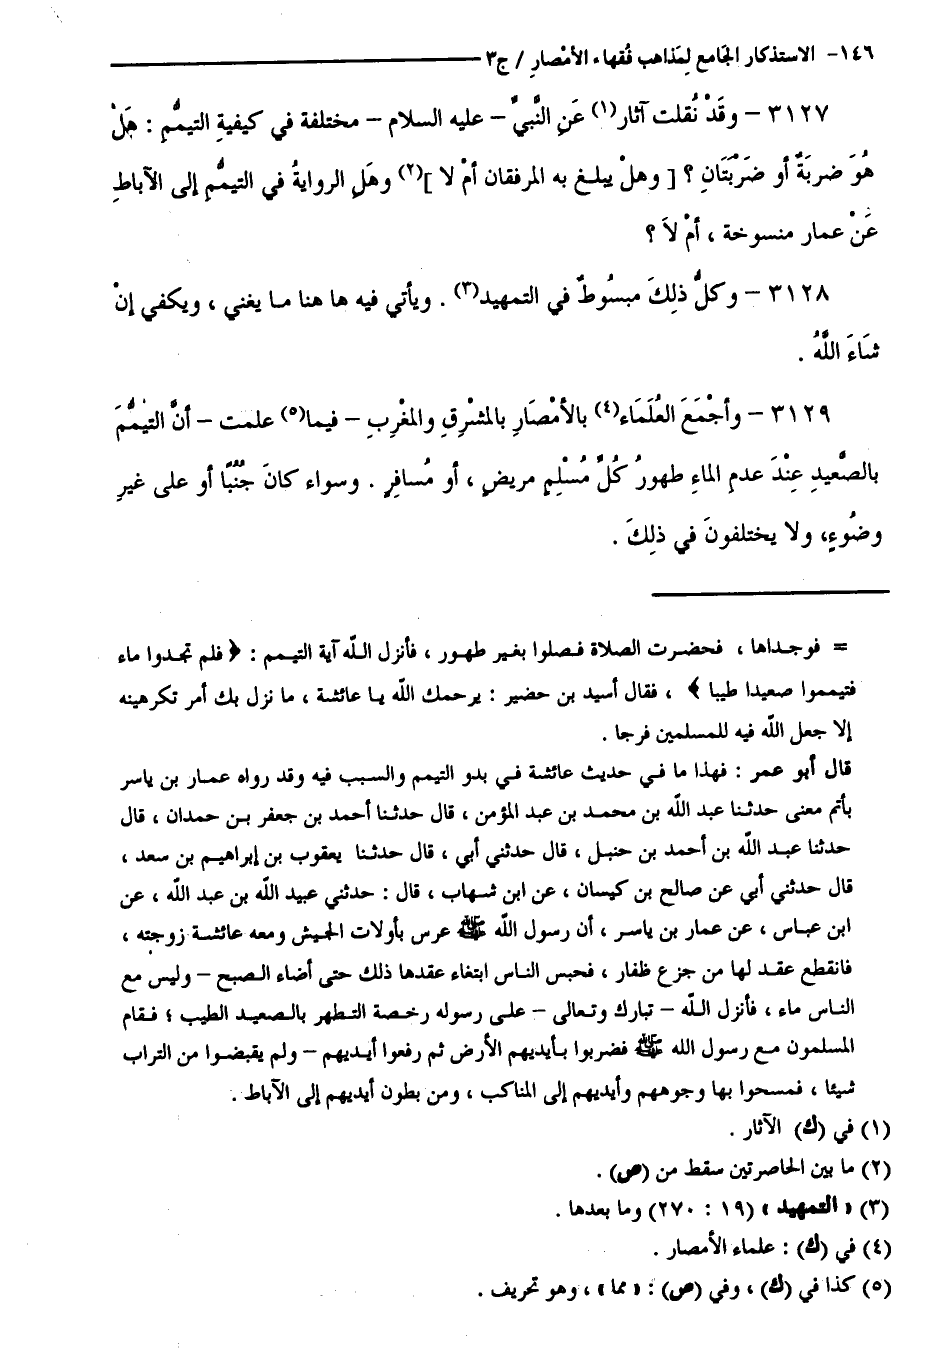 ١٤٦- الاستذكار الجَامع لِمَذاهب فُقهاء الأمْصارِ / ج٣
٣١٢٧ – وقَدْ نُقلت آثار(١) عَنِ النَّبيِّ – عليه السلام – مختلفة في كيفيةِ التيمُّمِ : هَلْ
هُوَ ضربَةٌ أو ضَرْبَتَانِ ؟ [ وهلْ يبلغ به المرفقان أمْ لا ](٢) وهَلِ الروايةُ في التيمُّمِ إلى الآباطِ
عَنْ عمار منسوخة ، أمْ لاَ ؟
٣١٢٨ – وكلُّ ذلِكَ مبسُوطٌ في التمهيد(٣) . ويأتي فيه ها هنا ما يغني ، ويكفي إنْ
شَاءَ اللَّهُ .
٣١٢٩ – وأجْمَعَ العُلَمَاء(٤) بالأمْصَارِ بالمشْرِقِ والمغْرِبِ – فيما(٥) علمت – أنَّ التيمُّمَ
بالصَّعيدِ عِنْدَ عدمِ الماءِ طهورُ كُلِّ مُسْلِمٍ مريضٍ ، أو مُسافِرٍ . وسواء كانَ جُنُبًا أو على غيرِ
وضُوءٍ، ولا يختلفونَ في ذلِكَ .
= فوجداها ، فحضرت الصلاة فصلوا بغير طهور ، فأنزل اللّه آية التيمم : ﴿ فلم تجدوا ماء
فتيمموا صعيدا طيبا ﴾ ، فقال أسيد بن حضير : يرحمك اللّه يا عائشة ، ما نزل بك أمر تكرهينه
إلا جعل اللّه فيه للمسلمين فرجا .
قال أبو عمر : فهذا ما في حديث عائشة في بدو التيمم والسبب فيه وقد رواه عمار بن ياسر
بأتم معنى حدثنا عبد اللّه بن محمد بن عبد المؤمن ، قال حدثنا أحمد بن جعفر بن حمدان ، قال
حدثنا عبد اللّه بن أحمد بن حنبل ، قال حدثني أبي ، قال حدثنا يعقوب بن إبراهيم بن سعد ،
قال حدثني أبي عن صالح بن كيسان ، عن ابن شهاب ، قال : حدثني عبيد اللّه بن عبد اللّه ، عن
ابن عباس ، عن عمار بن ياسر ، أن رسول اللّه ﷺ عرس بأولات الجيش ومعه عائشة زوجته ،
فانقطع عقد لها من جزع ظفار ، فحبس الناس ابتغاء عقدها ذلك حتى أضاء الصبح – وليس مع
الناس ماء ، فأنزل اللّه – تبارك وتعالى – على رسوله رخصة التطهر بالصعيد الطيب ؛ فقام
المسلمون مع رسول الله ﷺ فضربوا بأيديهم الأرض ثم رفعوا أيديهم – ولم يقبضوا من التراب
شيئا ، فمسحوا بها وجوههم وأيديهم إلى المناكب ، ومن بطون أيديهم إلى الآباط .
(١) في (ك) الآثار .
(٢) ما بين الحاصرتين سقط من (ص) .
(٣) « التمهيد » (١٩ : ٢٧٠) وما بعدها .
(٤) في (ك) : علماء الأمصار .
(٥) كذا في (ك) ، وفي (ص) : « مما » ، وهو تحريف .